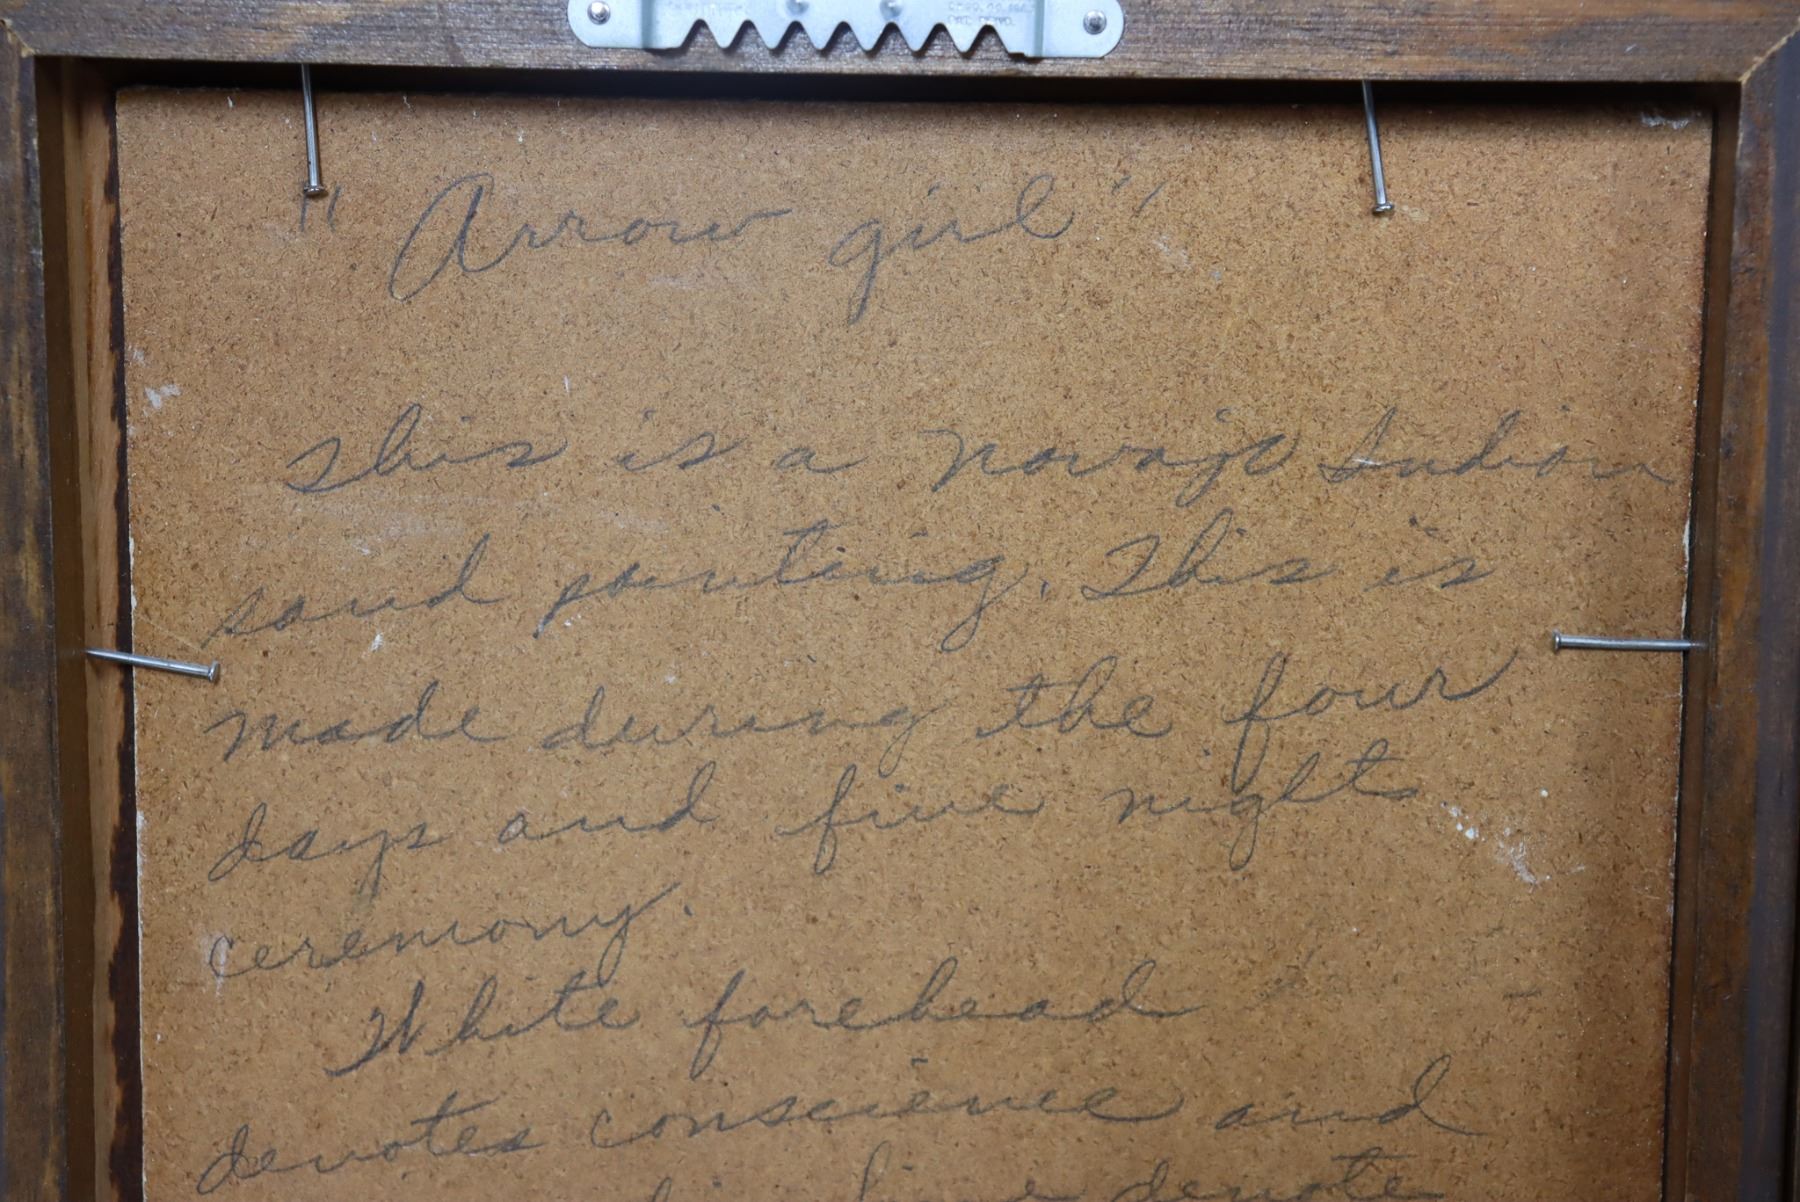 "Arrow girl"
This is a Navajo Indian
sand painting. This is
made during the four
days and five night
ceremony.
White forehead
denotes conscience and
denote